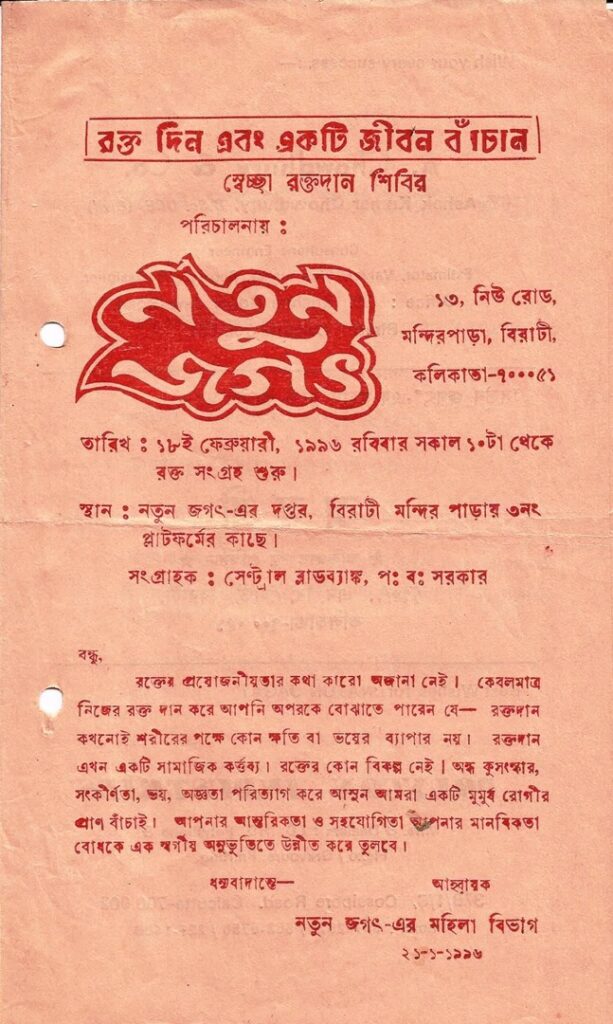 রক্ত দিন এবং একটি জীবন বাঁচান
স্বেচ্ছা রক্তদান শিবির
পরিচালনায় :
নতুন
জগৎ
১৩, নিউ রোড,
মন্দিরপাড়া, বিরাটী,
কলিকাতা-৭০০০৫১
তারিখ : ১৮ই ফেব্রুয়ারী, ১৯৯৬ রবিবার সকাল ১০টা থেকে
রক্ত সংগ্রহ শুরু।
স্থান : নতুন জগৎ-এর দপ্তর, বিরাটী মন্দির পাড়ায় ৩নং
প্লাটফর্মের কাছে।
সংগ্রাহক : সেন্ট্রাল ব্লাডব্যাঙ্ক, প: ব: সরকার
বন্ধু,
রক্তের প্রয়োজনীয়তার কথা কারো অজানা নেই। কেবলমাত্র
নিজের রক্ত দান করে আপনি অপরকে বোঝাতে পারেন যে— রক্তদান
কখনোই শরীরের পক্ষে কোন ক্ষতি বা ভয়ের ব্যাপার নয়। রক্তদান
এখন একটি সামাজিক কর্ত্তব্য। রক্তের কোন বিকল্প নেই। অন্ধ কুসংস্কার,
সংকীর্ণতা, ভয়, অজ্ঞতা পরিত্যাগ করে আসুন আমরা একটি মুমূর্ষ রোগীর
প্রাণ বাঁচাই। আপনার আন্তরিকতা ও সহযোগিতা আপনার মানবিকতা
বোধকে এক স্বর্গীয় অনুভূতিতে উন্নীত করে তুলবে।
ধন্যবাদান্তে—
আহ্বায়ক
নতুন জগৎ-এর মহিলা বিভাগ
২১-১-১৯৯৬